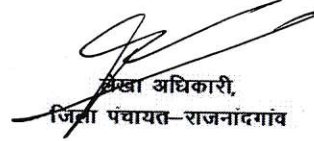 लेखा अधिकारी,
जिला पंचायत–राजनांदगांव